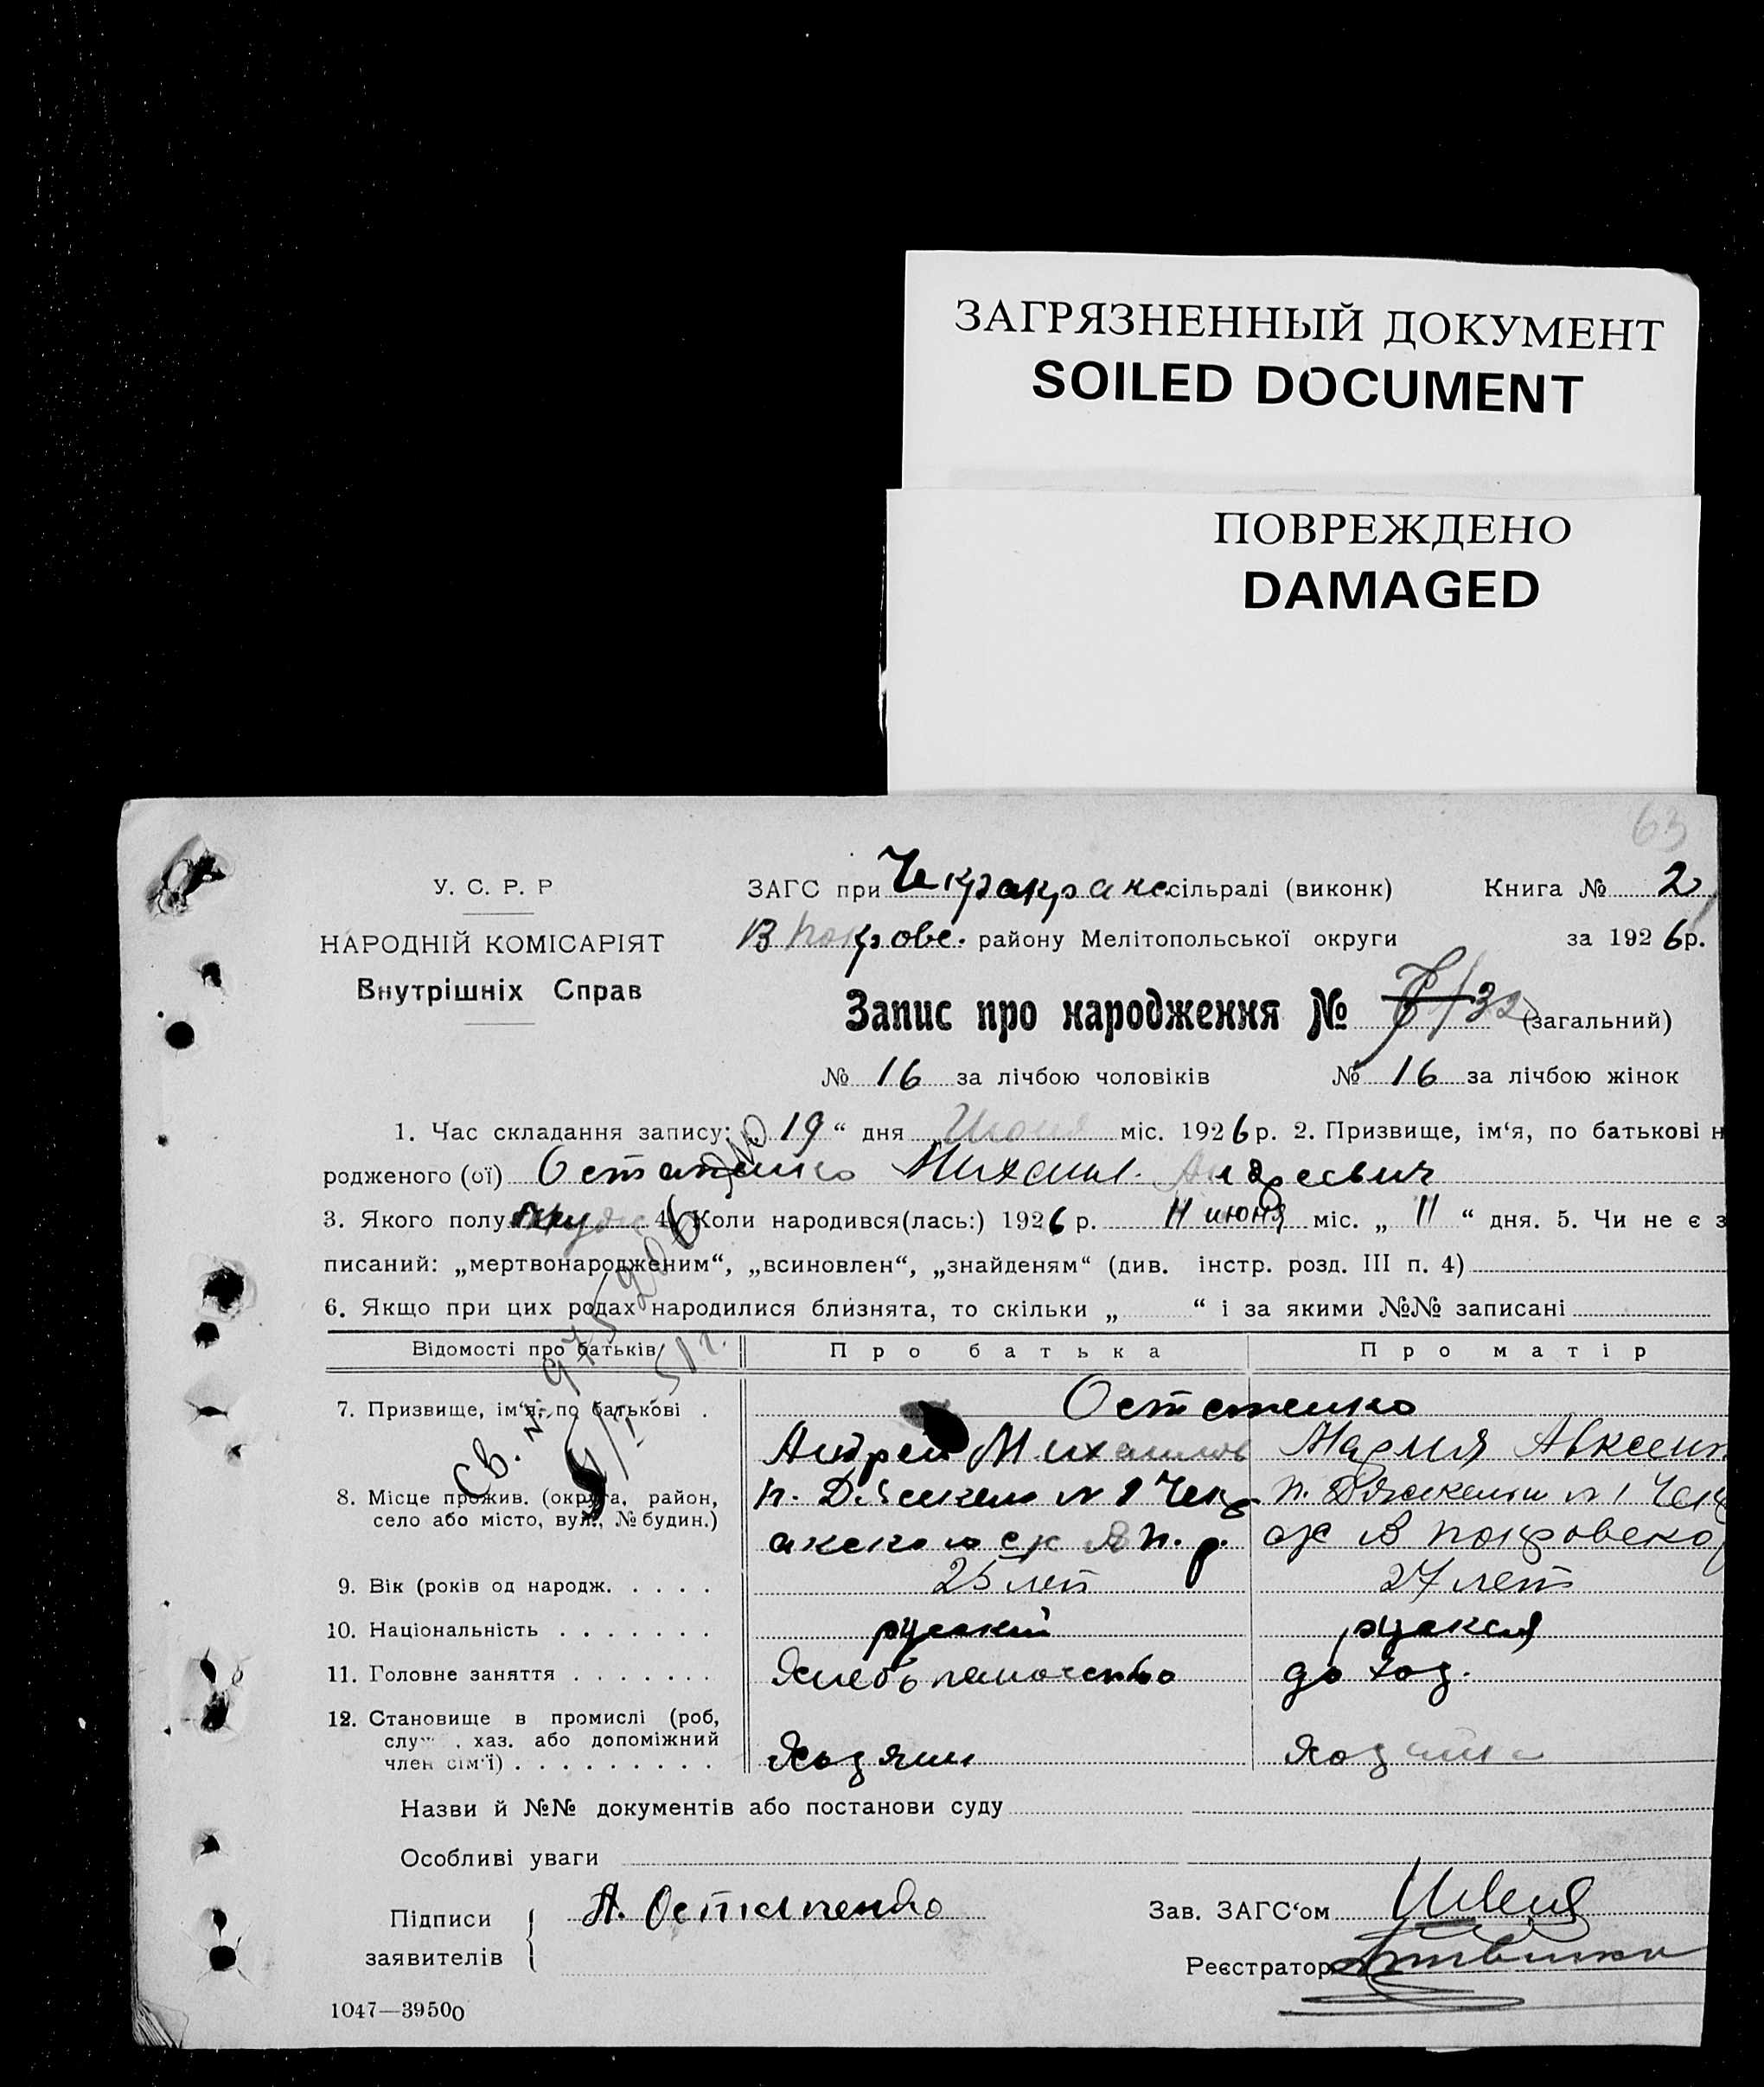 ЗАГРЯЗНЕННЫЙ ДОКУМЕНТ
SOILED DOCUMENT
ПОВРЕЖДЕНО
DAMAGED
63
У. С. Р. Р
НАРОДНІЙ КОМІСАРІЯТ
Внутрішніх Справ
ЗАГС при Чекракракс. сільраді (виконк) Книга № 2
В Покровс. району Мелітопольської округи за 1926 р.
Запис про народження № 32 (загальний)
№ 16 за лічбою чоловіків № 16 за лічбою жінок
1. Час складання запису: „19“ дня Июня міс. 1926 р. 2. Призвище, ім‘я, по батькові н
родженого (ої) Остапенко Михаил Андреевич
3. Якого полу 4. Коли народився(лась:) 1926 р. 11 июня міс. „11“ дня. 5. Чи не є з
писаний: „мертвонародженим“, „всиновлен“, „знайденям“ (див. інстр. розд. III п. 4)
6. Якщо при цих родах народилися близнята, то скільки „ “ і за якими №№ записані
Відомості про батьків Про батька Про матір
7. Призвище, ім‘я, по батькові . Остапенко
Андрей Михаилов Мария Авксент
8. Місце прожив. (округа, район,
село або місто, вул., № будин.)
п. №1 Чекр. п. №1 Чекр
В п. р. В покровско
9. Вік (років од народж. . . . . 25 лет 27 лет
10. Національність . . . . . . . русский руская
11. Головне заняття . . . . . . . Хлебопашество до хоз.
12. Становище в промислі (роб,
служ., хаз. або допоміжний
член сім‘ї) . . . . . . . . . Хозяин Хозяика
Св. №
51 г.
Назви й №№ документів або постанови суду
Особливі уваги
Підписи заявителів А. Остапенко
Зав. ЗАГС‘ом
Реєстратор
1047—39500